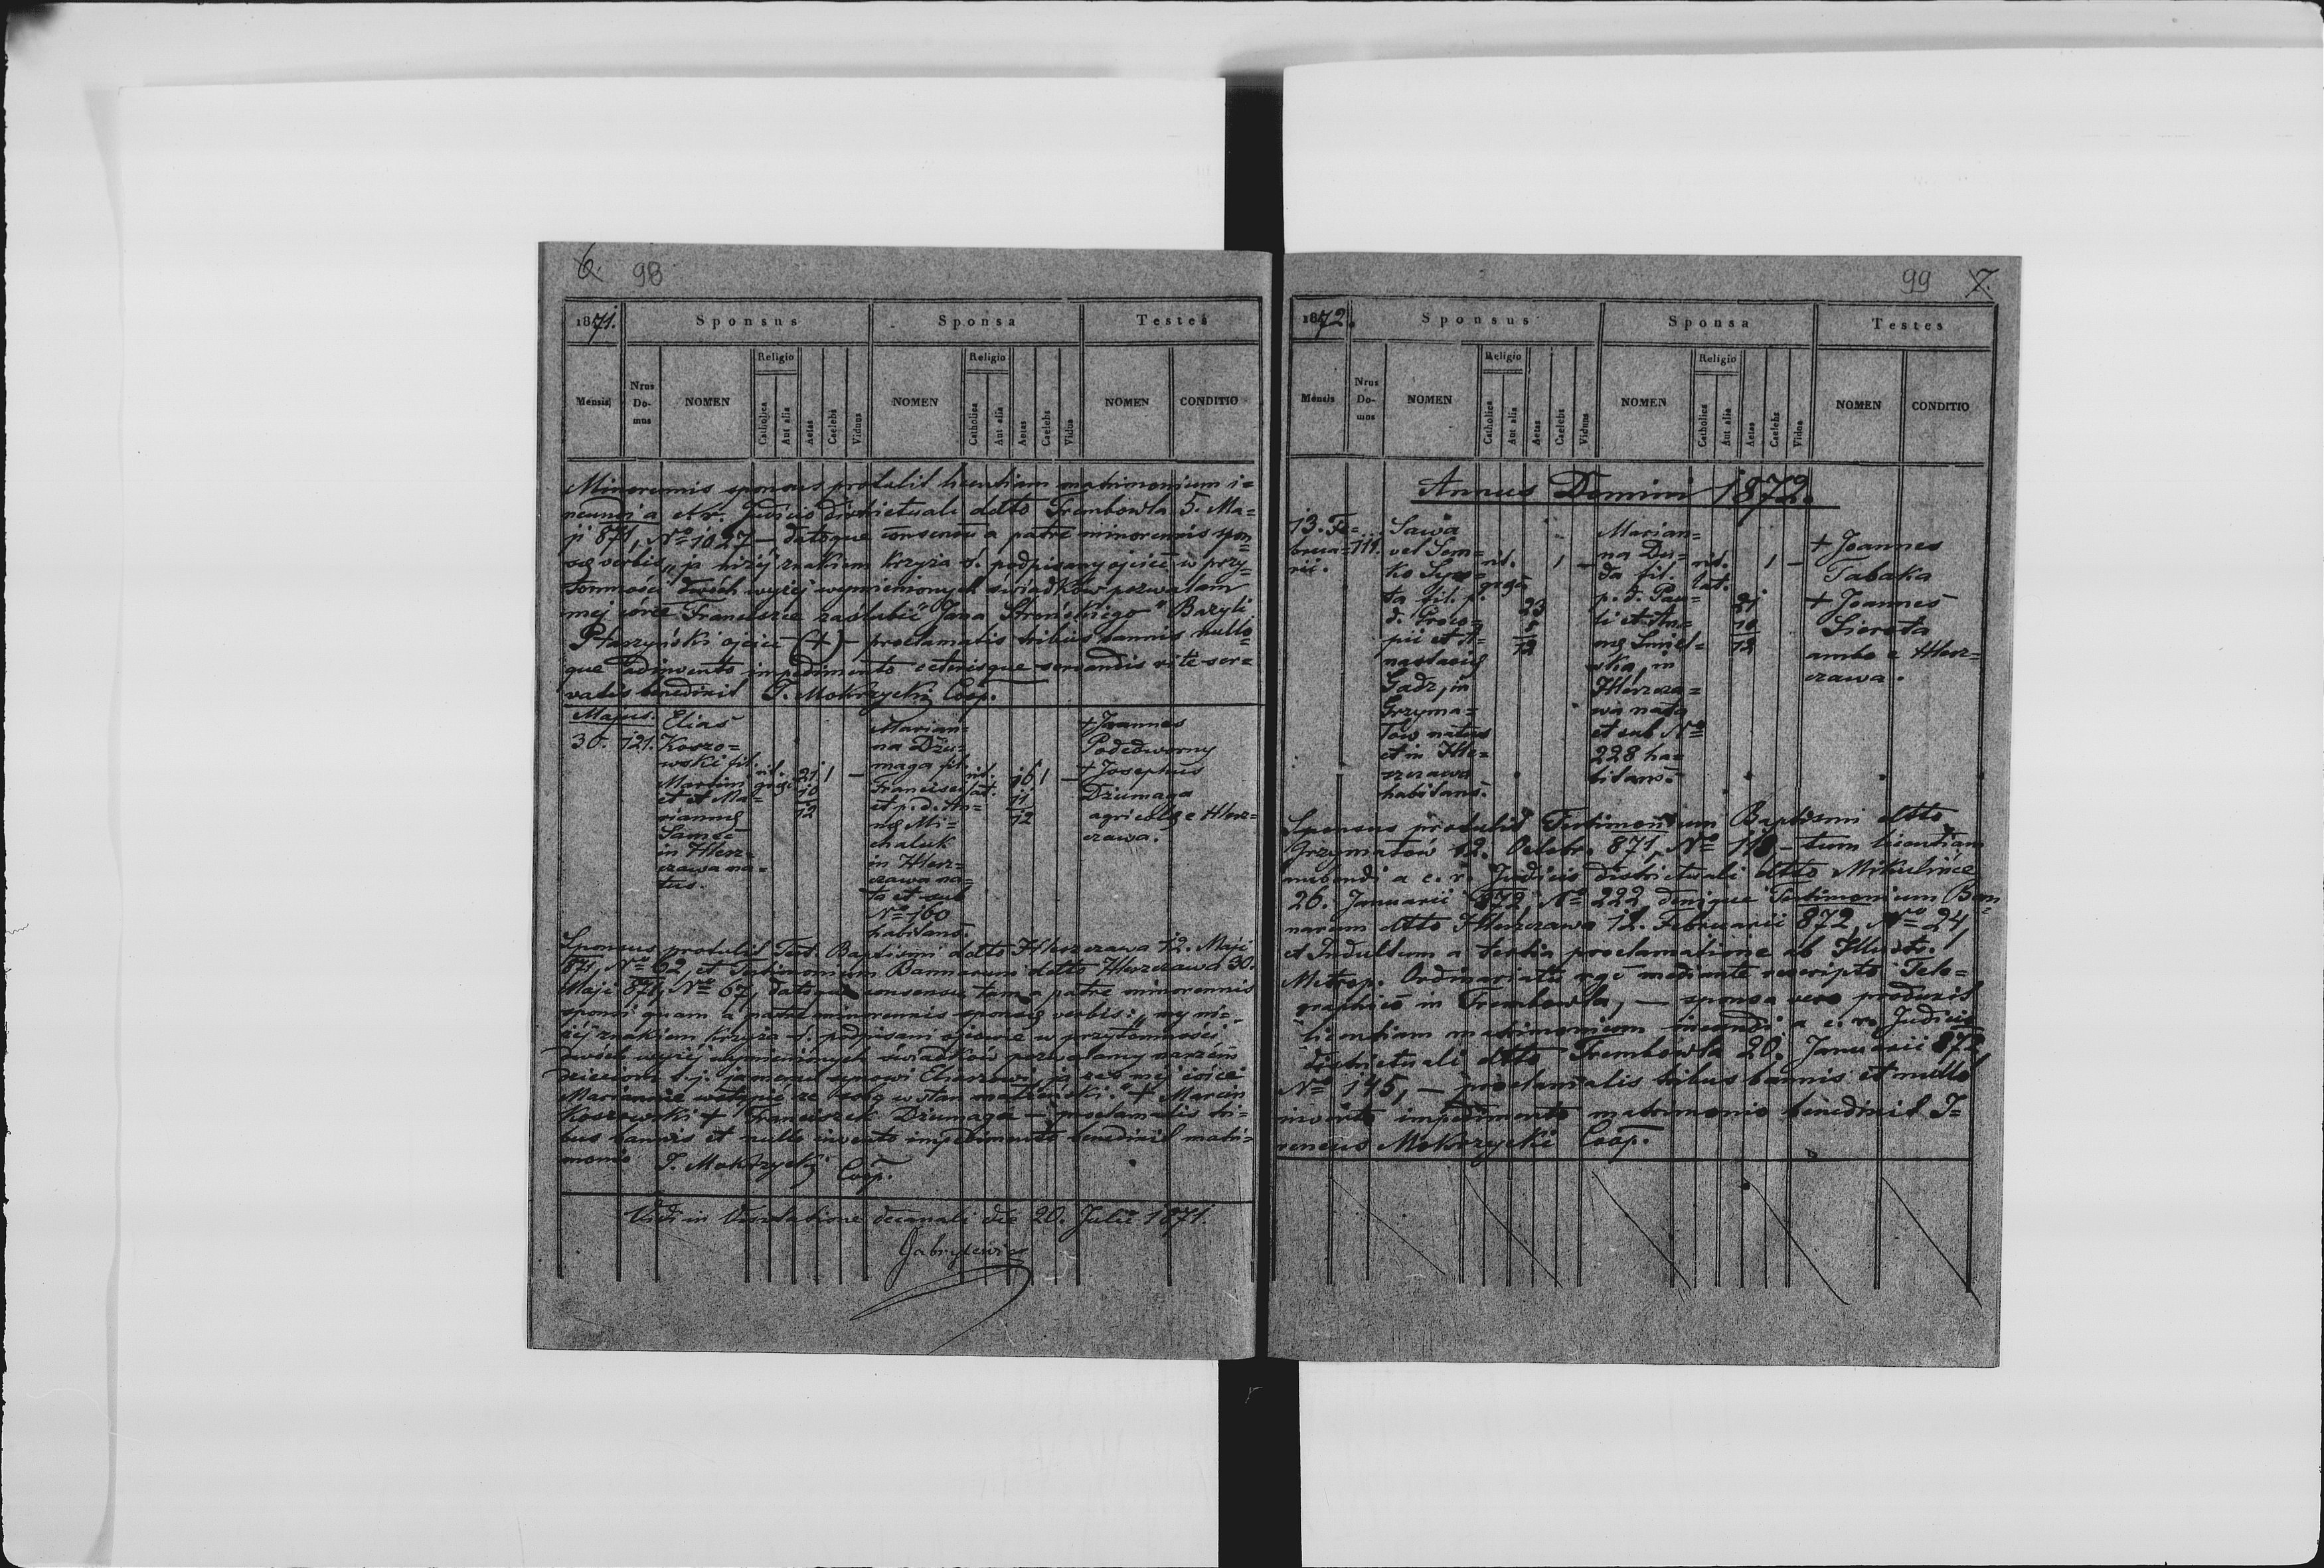 6. 98
1871.
Sponsus
Sponsa
Testes
Mensis
Nrus Domus
NOMEN
Religio
Catholica
Aut alia
Aetas
Caelebs
Viduus
NOMEN
Religio
Catholica
Aut alia
Aetas
Caelebs
Vidua
NOMEN
CONDITIO
Minorennis sponsus protulit licentiam matrimonium i=
neundi a Judicio districtuali ddtto Trembowla 5. Ma=
ji 871, No 1027 — datoque consensu a patre minorennis spon=
sę verbis „ja niżéj znakiem krzyża ś. podpisany ojciec w przy=
tomności dwóch wyżéj wymienionych świadków pozwalam
mej córce Franciszce zaślubić Jana Stronskiego" Bazyli
ojciec (+) — proclamatis tribus bannis nullo=
que adinvento impedimento ceterisque servandis rite ser=
vatis benedixit J. Mokrzycki Coop.
Majus.
30.
121.
Elias
Koszo=
wski fil.
Martini
et Ma=
riannę
Samec
in Hlesz=
czawa na=
tus.
rit.
21
10
12
1
—
Marian=
na Dżu=
maga fil.
Francisci
et p. d. An=
nę Mi=
chaluk
in Hlesz=
czawa na=
ta et sub
No 160
habitans.
rit.
lat.
16
11
12
1
—
+ Joannes
Podedworny
+ Josephus
Dżumaga
agricolę e Hlesz=
czawa.
Sponsus protulit Test. Baptismi ddtto Hleszczawa 12. Maji
871, No 62, et Testimonium Bannorum ddtto Hleszczawa 30.
Maji 871, No 67, datoque consensu tam a patre minorennis
sponsi quam a patre minorennis sponsę verbis: „my ni=
żéj znakiem krzyża ś. podpisani ojcowie w przytomności
dwóch wyżéj wymienionych świadków pozwalamy naszém
dzieciom t. j. ja memu synowi Eliaszowi, ja zaś mej córce
Mariannie wstąpić ze sobą w stan małżeński." + Marcin
Koszowski + Franciszek Dżumaga — proclamatis tri=
bus bannis et nullo invento impedimento benedixit matri=
monio J. Mokrzycki
Coop.
Vidi in Visitatione decanali die 20. Julii 1871.
Gabrylewicz
99 7.
1872.
Sponsus
Sponsa
Testes
Mensis
Nrus Domus
NOMEN
Religio
Catholica
Aut alia
Aetas
Caelebs
Viduus
NOMEN
Religio
Catholica
Aut alia
Aetas
Caelebs
Vidua
NOMEN
CONDITIO
Annus Domini 1872.
13. Fe=
brua=
rii.
111.
Sawa
vel Sem=
ko
ta fil. p.
d. Proco=
pii et A=
nastasię
Gadz, in
Grzyma=
łow natus
et in Hle=
szczawa
habitans.
rit.
23
8
12
1
—
Marian=
na Du=
da fil.
p. d. Pau=
li et An=
nę
ska, in
Hleszcza=
wa nata
et sub No
228 ha=
bitans.
rit.
lat.
21
10
12
1
—
+ Joannes
Tabaka
+ Joannes
Sierota
ambo e Hlesz=
czawa.
Sponsus protulit Testimonium Baptismi ddtto
Grzymałów 12. Octobr. 871, No 118 — tum licentiam
nubendi a c. r. Judicio districtuali ddtto Mikulińce
26. Januarii 872, No 222, denique Testimonium Ban=
norum ddtto Hleszczawa 12. Februarii 872, No 24,
et Indultum a tertia proclamatione ab
Metrop. Ordinariatu mediante rescripto Tele=
graphico in Trembowla, — sponsa vero produxit
licentiam matrimonium ineundi a c. r. Judicio
districtuali ddtto Trembowla 20. Januarii 872
No 145, — proclamatis bibus bannis et nullo
invento impedimento matrimonio benedixit I=
reneus Mokrzycki Coop.